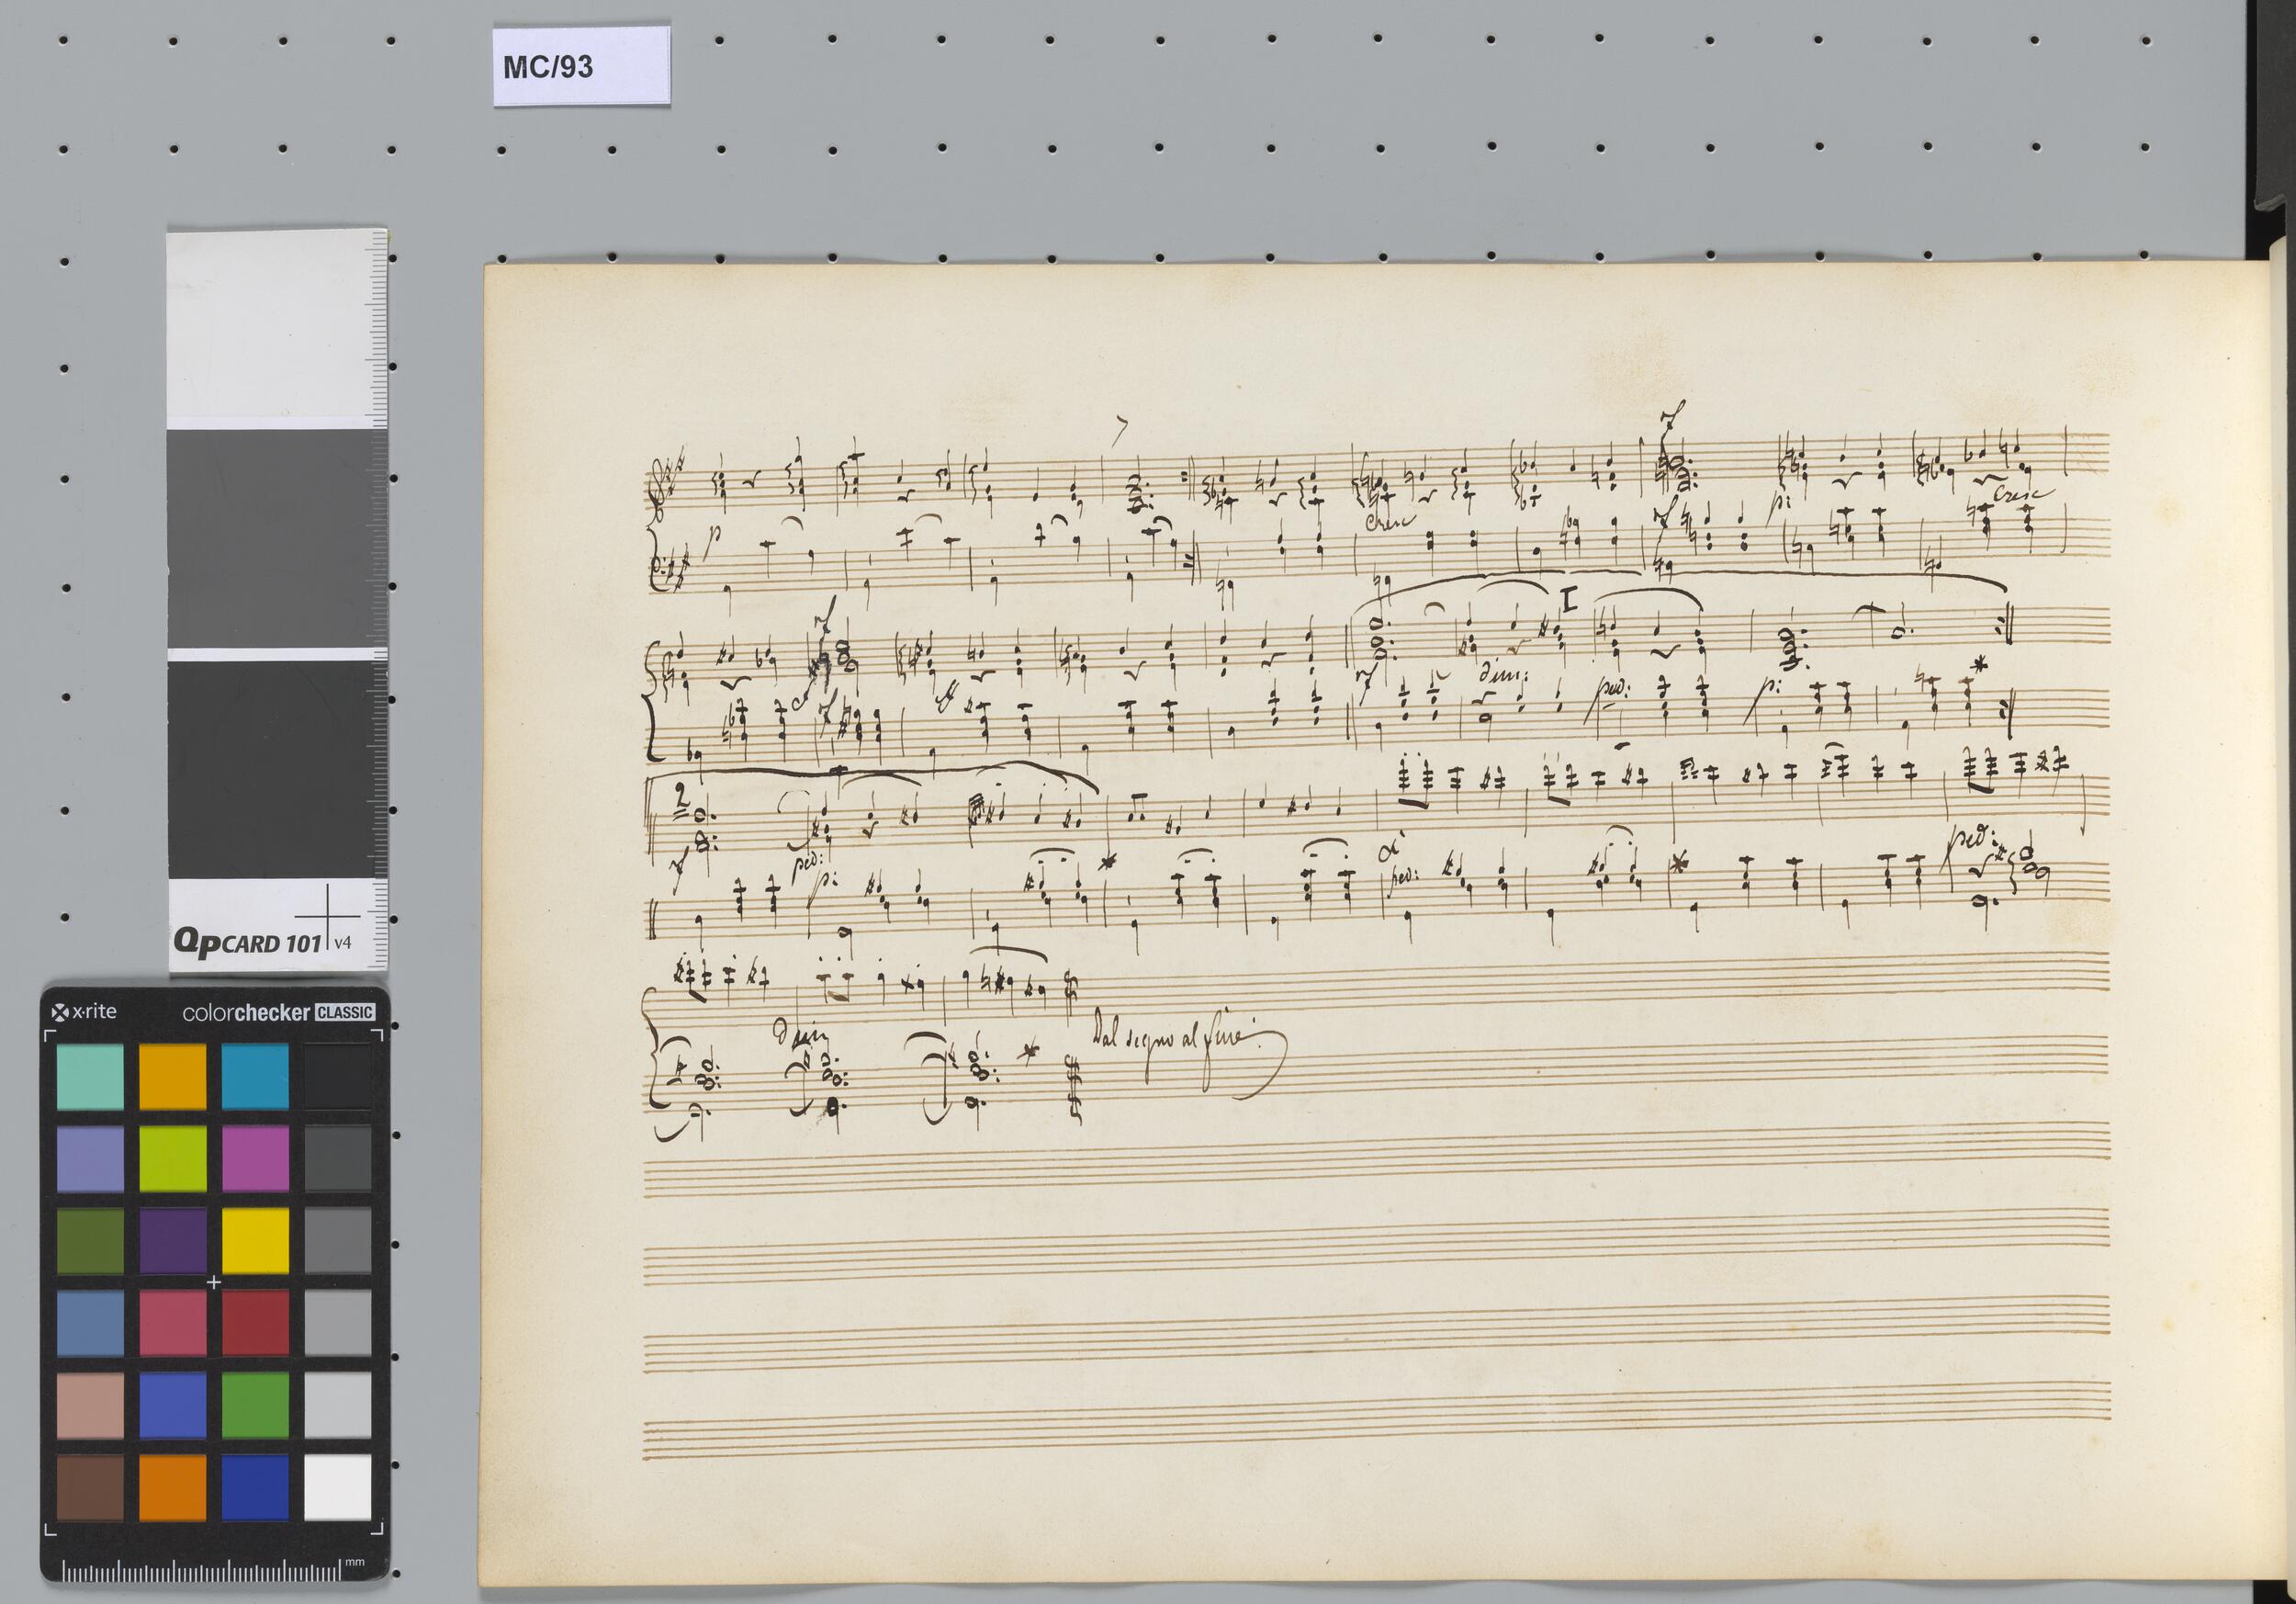 MC/93
p
cresc
p:
cresc
I
dim:
ped:
p:
2
ped:
p:
ped:
ped:
QPCARD 101 v4
x·rite colorchecker CLASSIC
dim
Dal segno al fine
mm